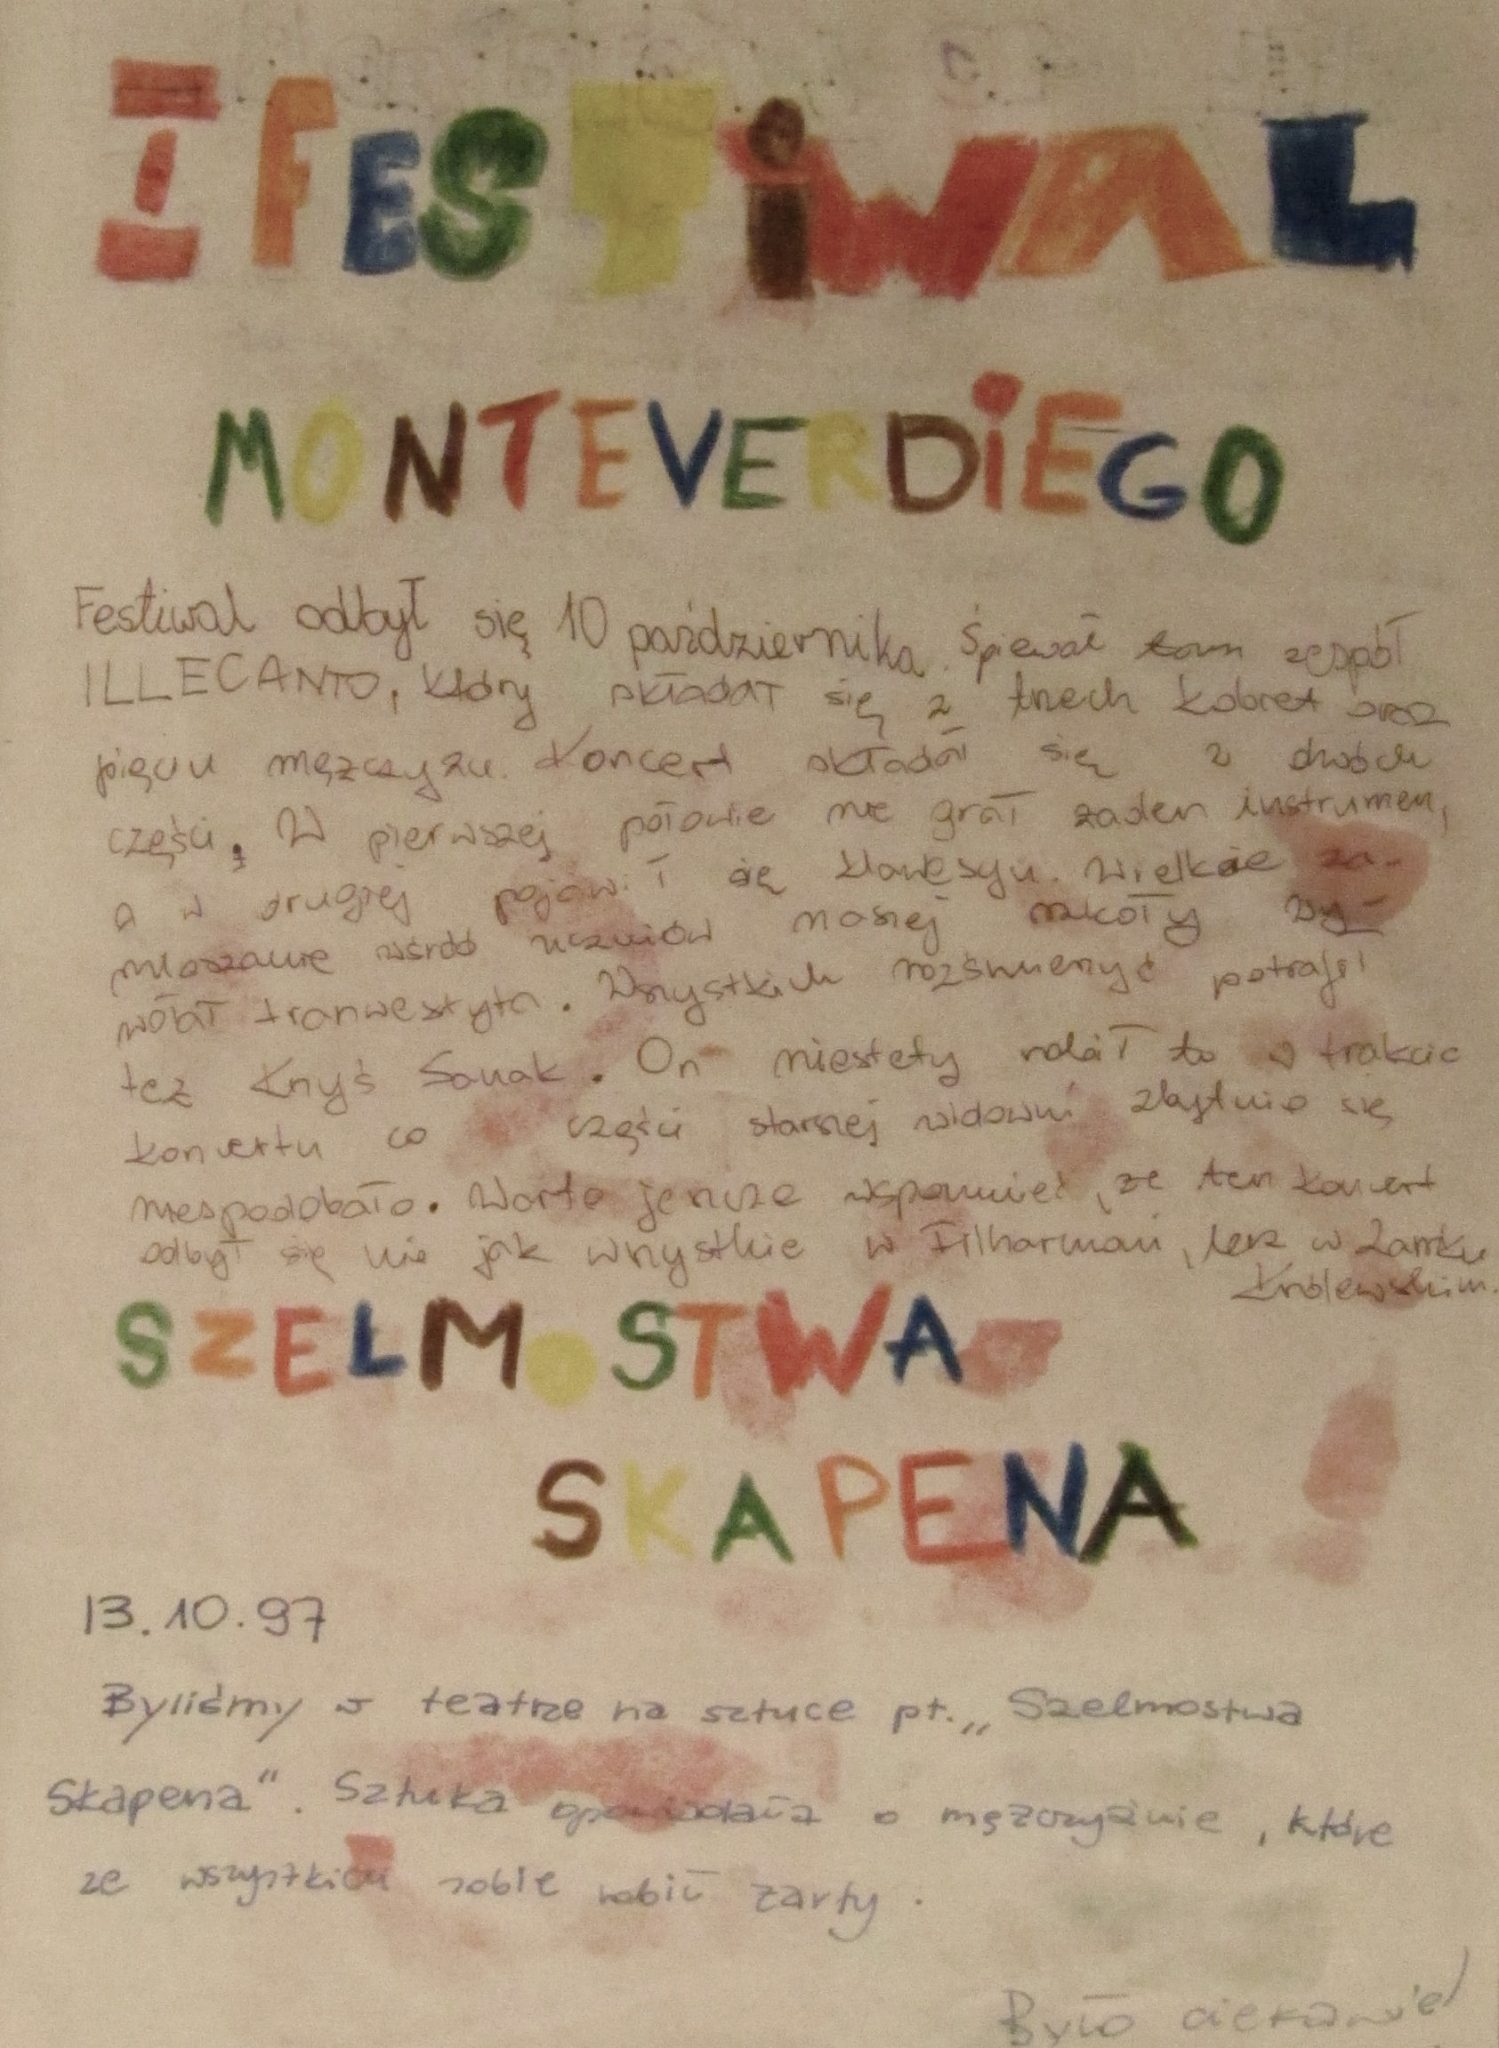 I FESTiWAL
MONTEVERDiEGO
Festiwal odbył się 10 października. Śpiewał tam zespół
ILLECANTO, który składał się z trzech kobiet oraz
pięciu mężczyzn. Koncert składał się z dwóch
części. W pierwszej połowie nie grał żaden instrument,
a w drugiej pojawił się klawesyn. Wielkie za-
mieszanie wśród uczniów naszej szkoły wy-
wołał tranwestyta. Wszystkich rozśmieszyć potrafił
też Krzyś Sanak. On niestety robił to w trakcie
koncertu co części starszej widowni zbytnio się
niespodobało. Warto jeszcze wspomnieć, że ten koncert
odbył się nie jak wszystkie w Filharmonii, lecz w Zamku
Królewskim.
SZELMOSTWA
SKAPENA
13.10.97
Byliśmy w teatrze na sztuce pt. „Szelmostwa
Skapena". Sztuka opowiadała o mężczyźnie, które
ze wszystkich sobie robił żarty.
Było ciekawie!